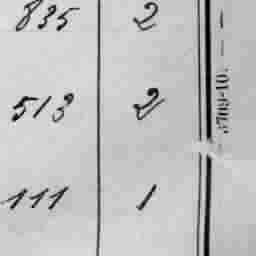 835 2
513 2
111 1
3709-10.